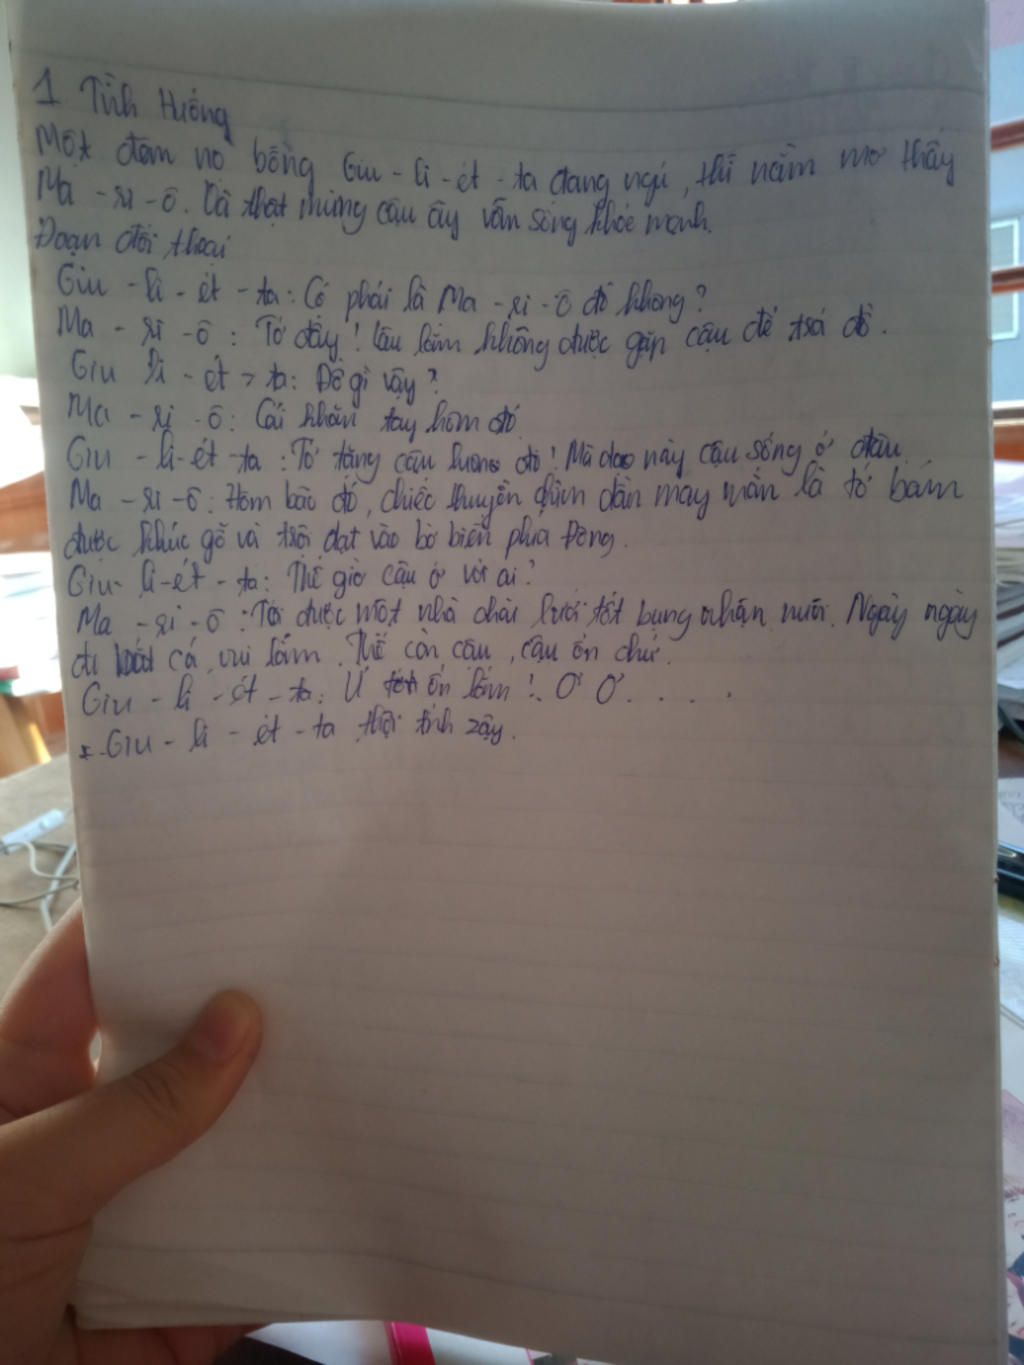 1 Tình Huống
Một đêm nọ bỗng Giu - li - ét - ta đang ngủ, thì nằm mơ thấy
Ma - ri - ô. Và thật mừng cậu ấy vẫn sống khỏe mạnh.
Đoạn đối thoại
Giu - li - ét - ta: Có phải là Ma - ri - ô đó không?
Ma - ri - ô : Tớ đây! Lâu lắm không được gặp cậu để trả đồ.
Giu li - ét - ta: Đồ gì vậy?
Ma - ri - ô: Cái khăn tay hôm đó
Giu - li-ét - ta : Tớ tặng cậu luôn đó! Mà dạo này cậu sống ở đâu
Ma - ri - ô: Hôm bão đó, chiếc thuyền chìm dần may mắn là tớ bám
được khúc gỗ và trôi dạt vào bờ biển phía Đông.
Giu- li-ét - ta: Thế giờ cậu ở với ai?
Ma - ri - ô : Tới được một nhà chài lưới tốt bụng nhận nuôi. Ngày ngày
đi bắt cá, vui lắm. Thế còn cậu, cậu ổn chứ.
Giu - li - ét - ta: Ừ ổn lắm! Ơ Ơ . . . .
Giu - li - ét - ta thội tỉnh zậy.